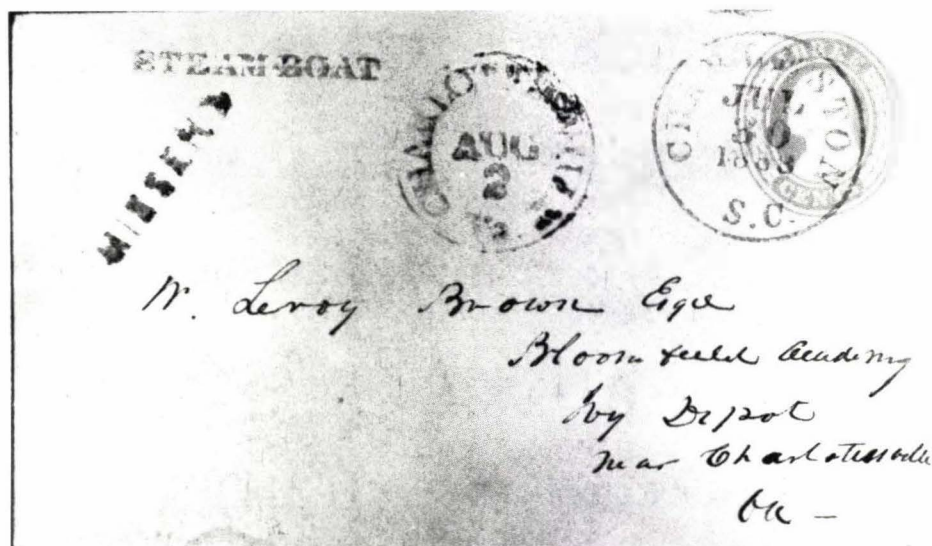 STEAM-BOAT
MISSENT
CHARLOTTESVILLE
AUG
3
CHARLESTON
JUL
30
S.C.
W. Leroy Brown Esqe
Bloomfield Academy
Ivy Depot
near Charlottesville
Va -